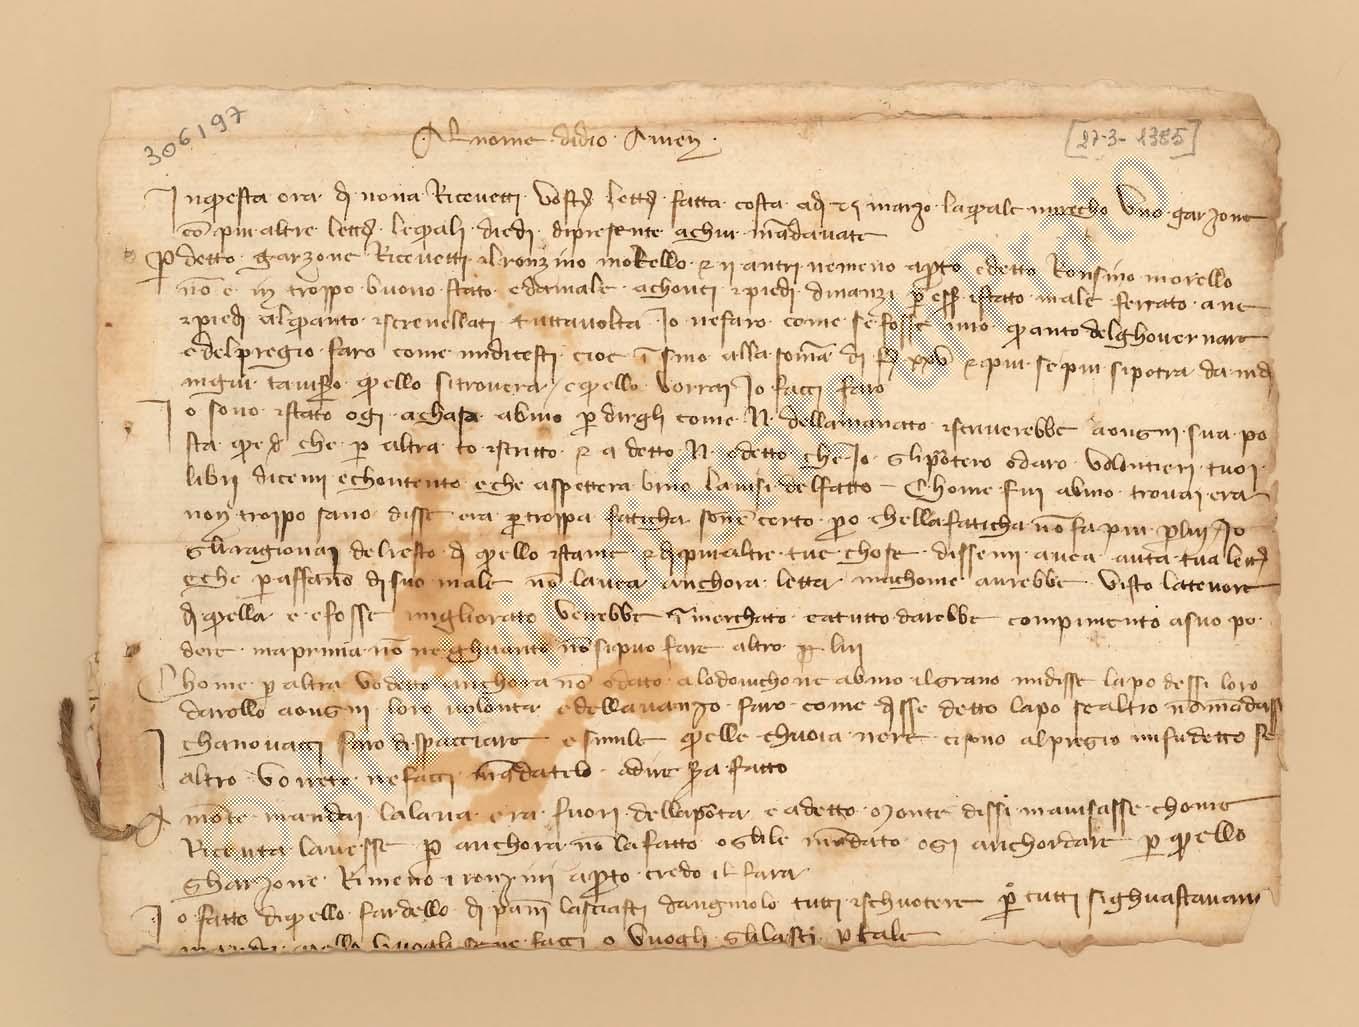 306197
Al nome didio Amen
[27-3-1385]
Inquesta ora di nona Ricevetti vostra lettera fatta costa adi 25 marzo laquale mirecho uno garzone
con piu altre lettere lequali diedi dipresente achui mandavate
Per detto garzone Ricevetti il ronzino morello & ii antri nemeno a prato e detto Ronsino morello
non e in troppo buono stato edamale achonci i piedi dinanzi per esser istato male ferrato ane
i piedi alquanto iscrevellati tuttavolta Io nefaro come se fosse mio quanto delghovernare
e del pregio faro come midicesti cioe in sino alla soma di f xxv & piu se piu sipotra da indi
ingiu tanpoco quello sitrovera equello vorrai Io facci faro
Io sono istato ogi achasa abino per dirgli come N dellamanato iscriverebbe aongni sua po
sta che per altra to iscritto & a detto N odetto che Io gliprotero odaro volentieri tuoi
libri dicemi echontento eche aspettera bino lavisi delfatto Chome fui abino trovai era
non troppo sano disse era per troppa faticha sonne certo pero chellafaticha non fa piu per lui Io
gliragionai delresto di quello istame & di piu altre tue chose dissemi avea auta tua lettera
eche per affanno di suo male non lavea anchora letta machome avrebbe visto latenore
di quella e efosse migliorato verebbe in merchato eatutto darebbe compimento asuo po
dere maprima non neghuante non sipuo fare altro per lui
Chome per altra vo detto anchora non o dato alodovichone abino ilgrano midisse lapo dessi loro
darollo aongni loro volonta edellavanzo faro come disse detto lapo sealtro non mandassi
chanovacci faro dispacciare e simile quelle chuoia nere cisono alpregio mifudetto se
altro volete nefacci mandatelo adire sara fatto
A monte mandai lalana era fuori dellaporta e adetto Monte dissi mavisasse chome
Ricevuta lavesse per anchora non la fatto oglile mandato ogi anchordare per quello
gharzone Rimeno i ronzini a prato credo il fara
Io fatto diquello fardello di panni lasciasti dangniolo tutti ischuotere per tutti sighuastavano
facci o vuogli glilasci